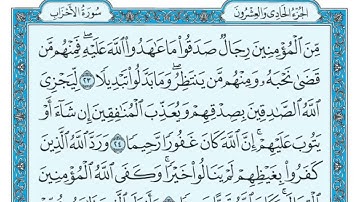 الجزء الحادي والعشرون
سورة الأحزاب
مِّنَ الْمُؤْمِنِينَ رِجَالٌ صَدَقُوا مَا عَاهَدُوا اللَّهَ عَلَيْهِ ۖ فَمِنْهُم مَّن
قَضَىٰ نَحْبَهُ وَمِنْهُم مَّن يَنتَظِرُ ۖ وَمَا بَدَّلُوا تَبْدِيلًا ٢٣ لِّيَجْزِيَ
اللَّهُ الصَّادِقِينَ بِصِدْقِهِمْ وَيُعَذِّبَ الْمُنَافِقِينَ إِن شَاءَ أَوْ
يَتُوبَ عَلَيْهِمْ ۚ إِنَّ اللَّهَ كَانَ غَفُورًا رَّحِيمًا ٢٤ وَرَدَّ اللَّهُ الَّذِينَ
كَفَرُوا بِغَيْظِهِمْ لَمْ يَنَالُوا خَيْرًا ۚ وَكَفَى اللَّهُ الْمُؤْمِنِينَ